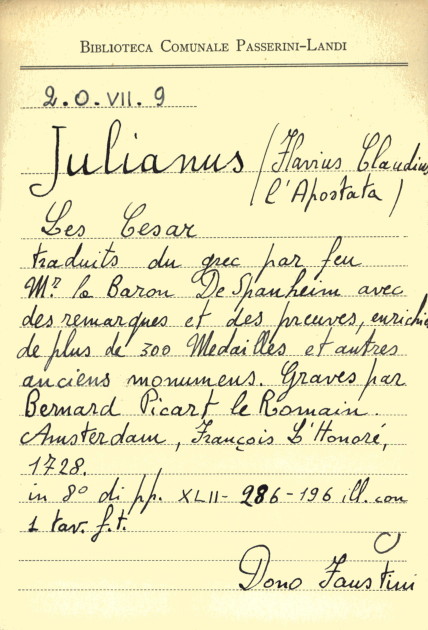 BIBLIOTECA COMUNALE PASSERINI-LANDI
2.O.VII.9
Julianus (Flavius Claudius
l'Apostata)
Les Cesar
traduits du grec par feu
Mr le Baron De Spanheim avec
des remarques et des preuves, enrichie
de plus de 300 Medailles et autres
anciens monumens. Graves par
Bernard Picart le Romain.
Amsterdam, François L'Honoré,
1728.
in 8° di pp. XLII-286-196 ill. con
1 tav. f.t.
Dono Faustini